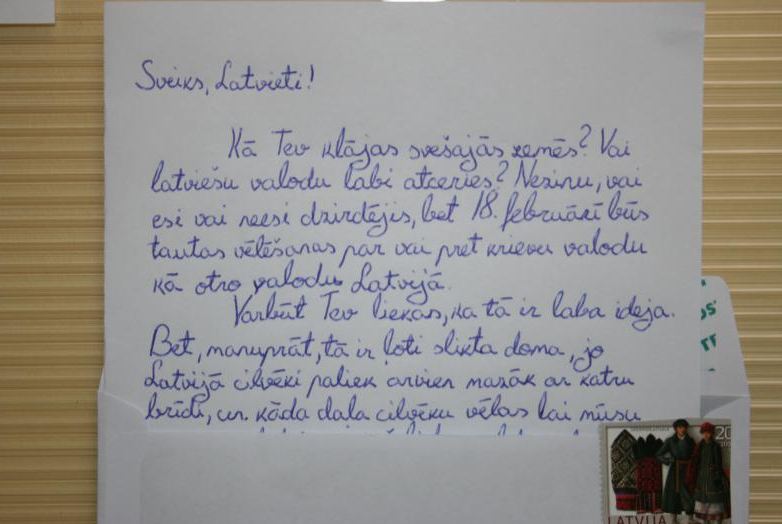 Sveiks, Latvieti!
Kā Tev klājas svešajās zemēs? Vai
latviešu valodu labi atceries? Nezinu, vai
esi vai neesi dzirdējis, bet 18. februārī būs
tautas vēlēšanas par vai pret krievu valodu
kā otro valodu Latvijā.
Varbūt Tev liekas, ka tā ir laba ideja.
Bet, manuprāt, tā ir ļoti slikta doma, jo
Latvijā cilvēki paliek arvien mazāk ar katru
brīdi, un kāda daļa cilvēku vēlas lai mūsu
LATVIJA